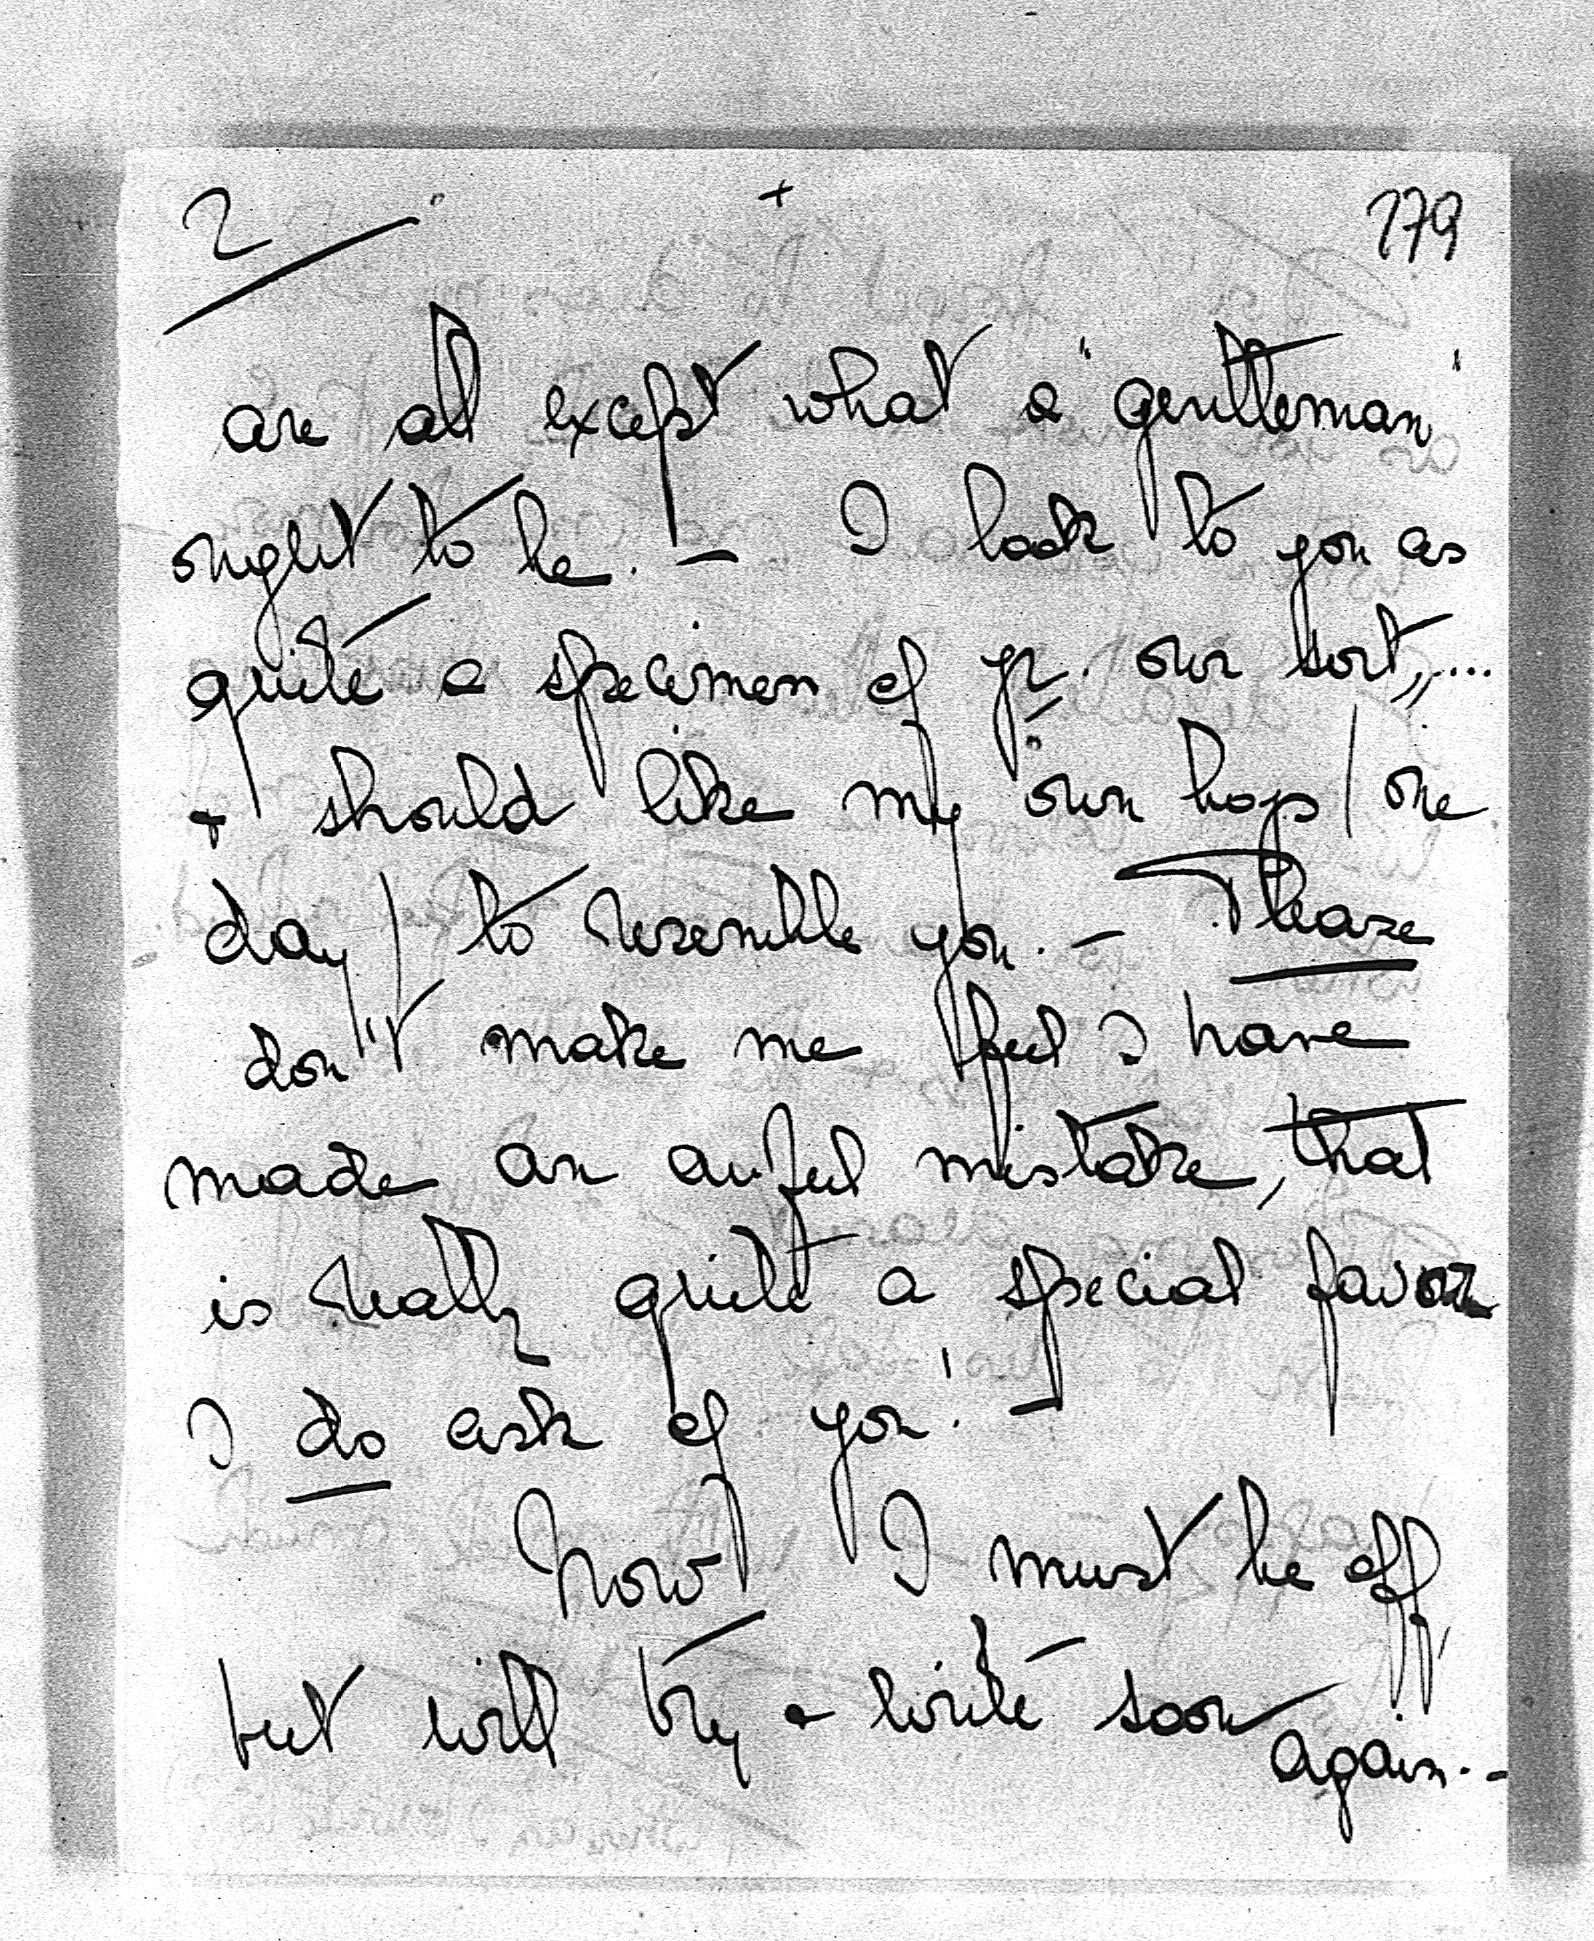 2
+
179
are all except what a 'gentleman'
ought to be. — I look to you as
quite a specimen of yr. own sort,....
+ should like my own boys / one
day / to resemble you. — Please
don't make me feel I have
made an awful mistake, that
is really quite a special favor
I do ask of you! —
Now I must be off,
but will try + write soon
again. -